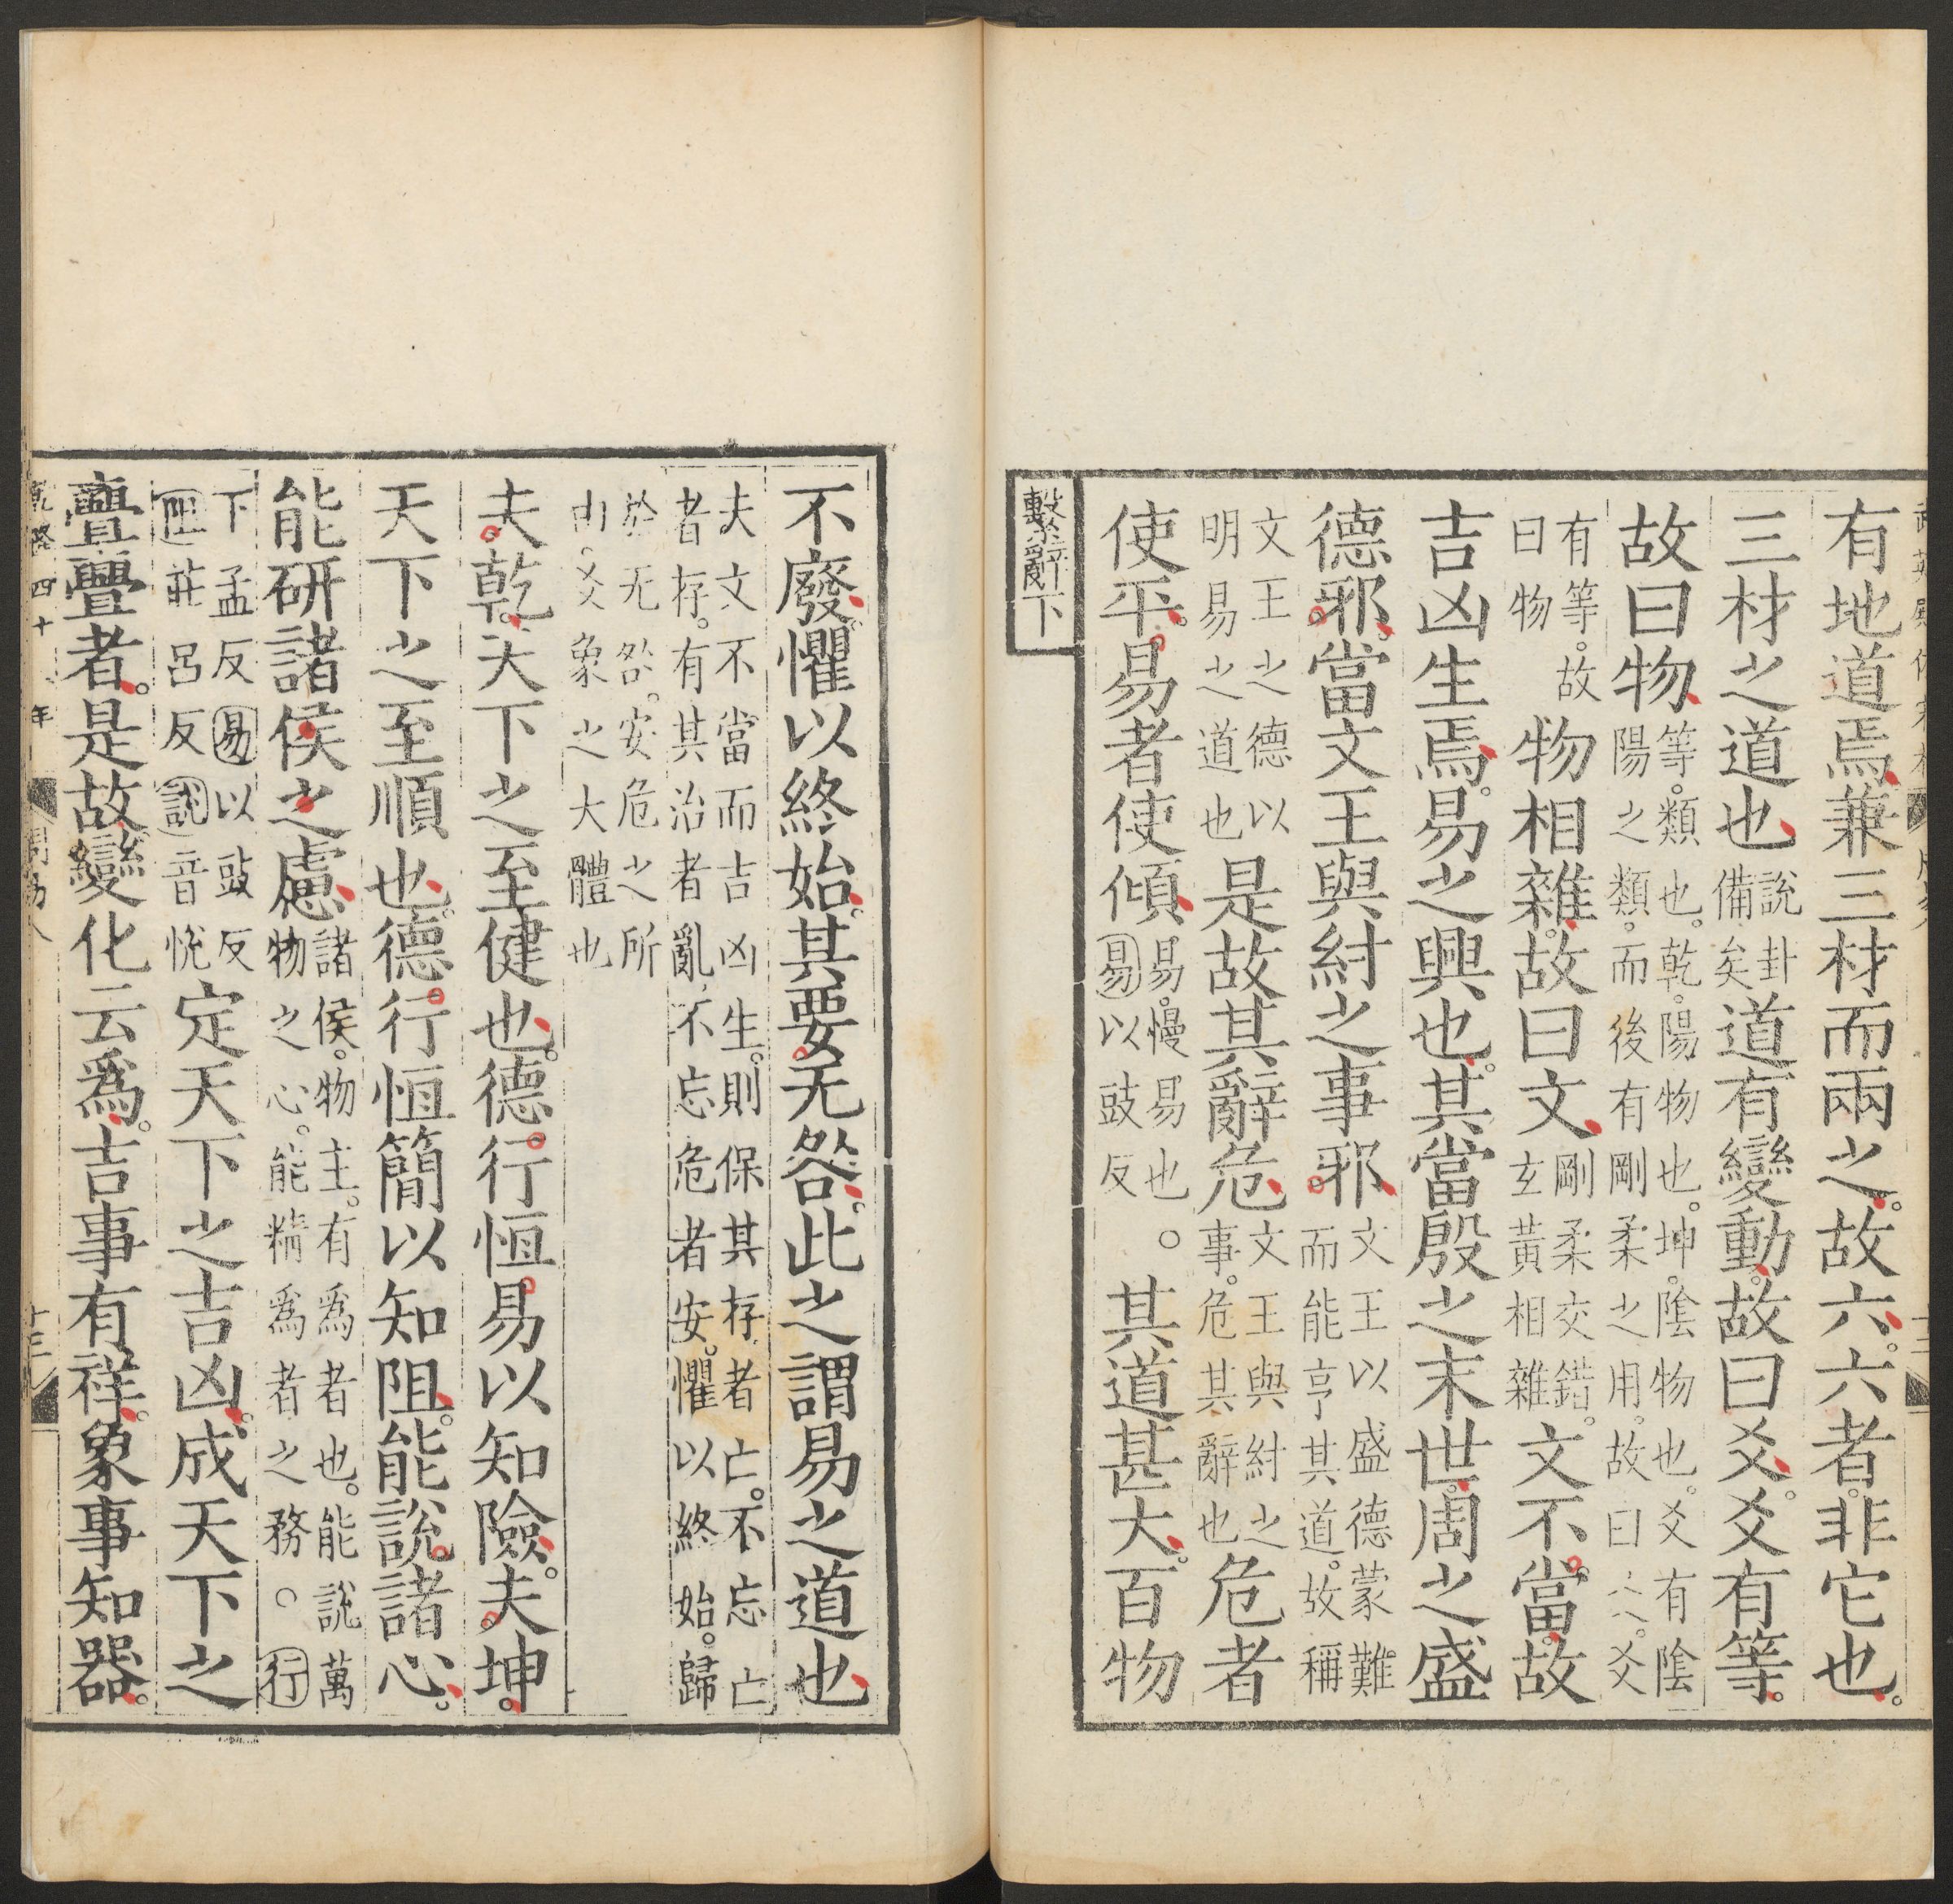 有地道焉兼三材而兩之。故六。六者非它也。
三材之道也說卦備矣道有變動。故曰爻。爻有等。
故曰物等。類也。乾。陽物也。坤。陰物也。爻有陰陽之類。而後有剛柔之用。故曰爻
有等。故曰物物相雜。故曰文剛柔交錯。玄黃相雜文不當。故
吉凶生焉。易之興也。其當殷之末世。周之盛
德邪。當文王與紂之事邪文王以盛德蒙難而能亨其道。故稱
文王之德以明易之道也是故其辭危文王與紂之事。危其辭也危者
使平。易者使傾易。慢易也。○易以豉反其道甚大。百物
繫辭下
不廢。懼以終始。其要无咎。此之謂易之道也
夫文不當而吉凶生。則保其存者亡。不忘亡者存。有其治者亂。不忘危者安。懼以終始。歸
於无咎。安危之所由。爻象之大體也
夫乾。天下之至健也。德行恆易以知險。夫坤。
天下之至順也。德行恆簡以知阻。能說諸心。
能研諸侯之慮諸侯。物主。有爲者也。能說萬物之心。能精爲者之務。○行
下孟反易以豉反阻莊呂反說音悅定天下之吉凶。成天下之
亹亹者。是故變化云爲。吉事有祥。象事知器。
乾隆四十八年 周易八 十三